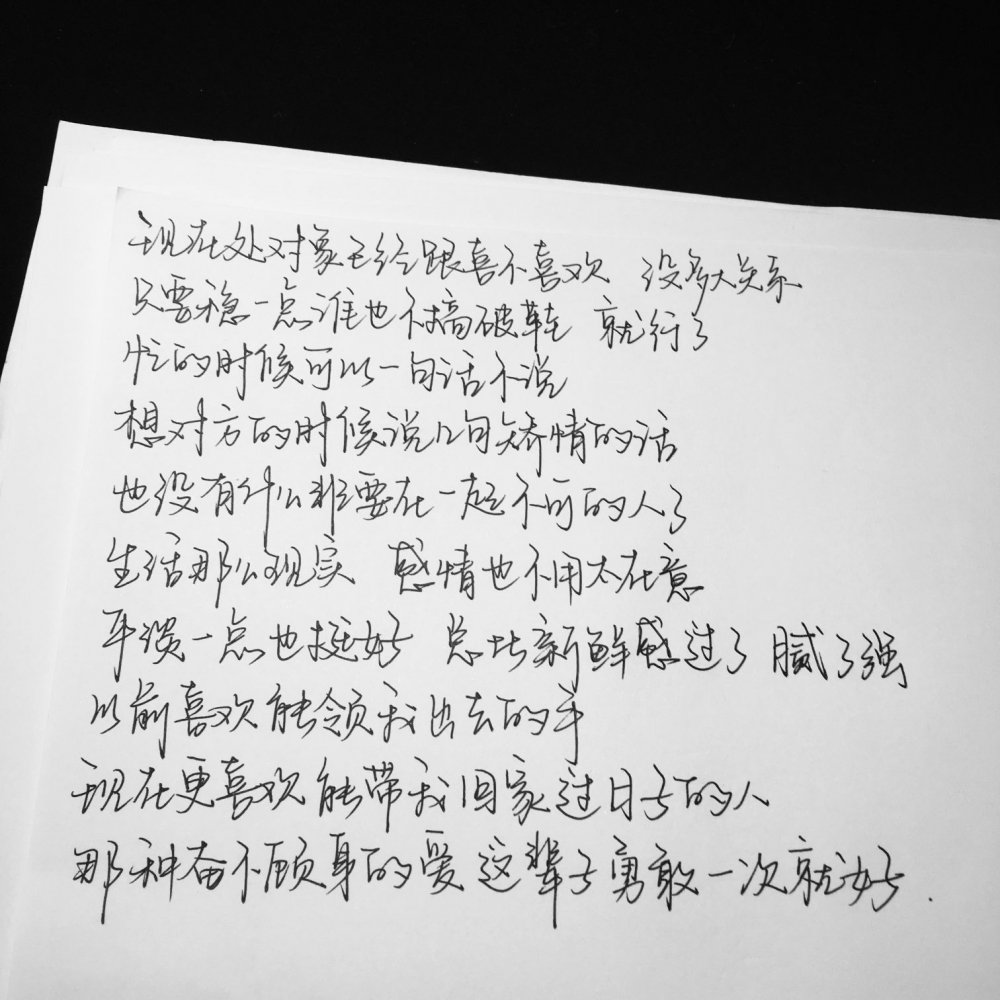 现在处对象已经跟喜不喜欢 没多大关系
只要稳一点谁也不搞破鞋 就行了
忙的时候可以一句话不说
想对方的时候说几句矫情的话
也没有什么非要在一起不可的人了
生活那么现实 感情也不用太在意
平淡一点也挺好 总比新鲜感过了 腻了强
以前喜欢能领我出去的手
现在更喜欢能带我回家过日子的人
那种奋不顾身的爱 这辈子勇敢一次就好.